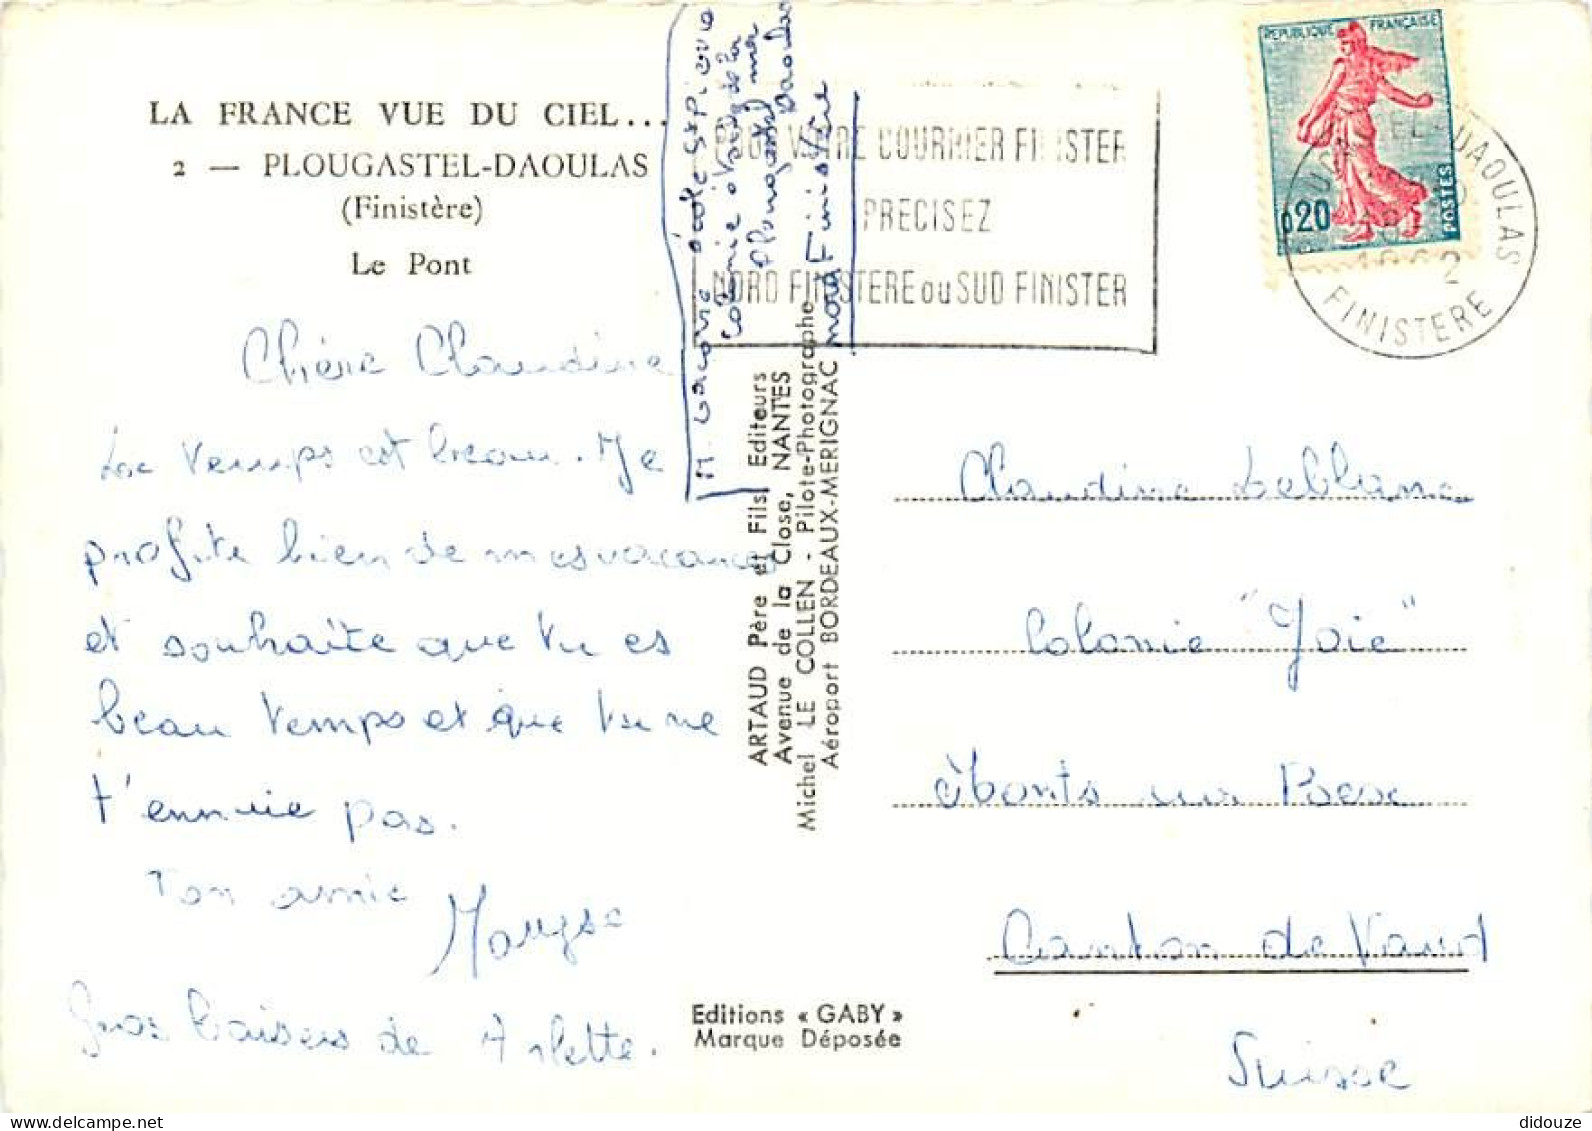 LA FRANCE VUE DU CIEL...
2 — PLOUGASTEL-DAOULAS
(Finistère)
Le Pont
Chère Claudine
Le temps est beau. Je
profite bien de mes vacances
et souhaite que tu es
beau temps et que tu ne
t'ennuie pas.
Ton amie
Maryse
Gros baisers de Arlette.
Finistère
nord
ARTAUD Père et Fils, Editeurs
Avenue de la Close, NANTES
Michel LE COLLEN - Pilote-Photographe
Aéroport BORDEAUX-MERIGNAC
Editions « GABY »
Marque Déposée
POUR VOTRE COURRIER FINISTER
PRECISEZ
NORD FINISTERE ou SUD FINISTER
REPUBLIQUE FRANÇAISE
0,20
POSTES
DAOULAS
FINISTERE
Claudine Leblanc
Colonie "Joie"
sur
Canton de Vaud
Suisse
didouze